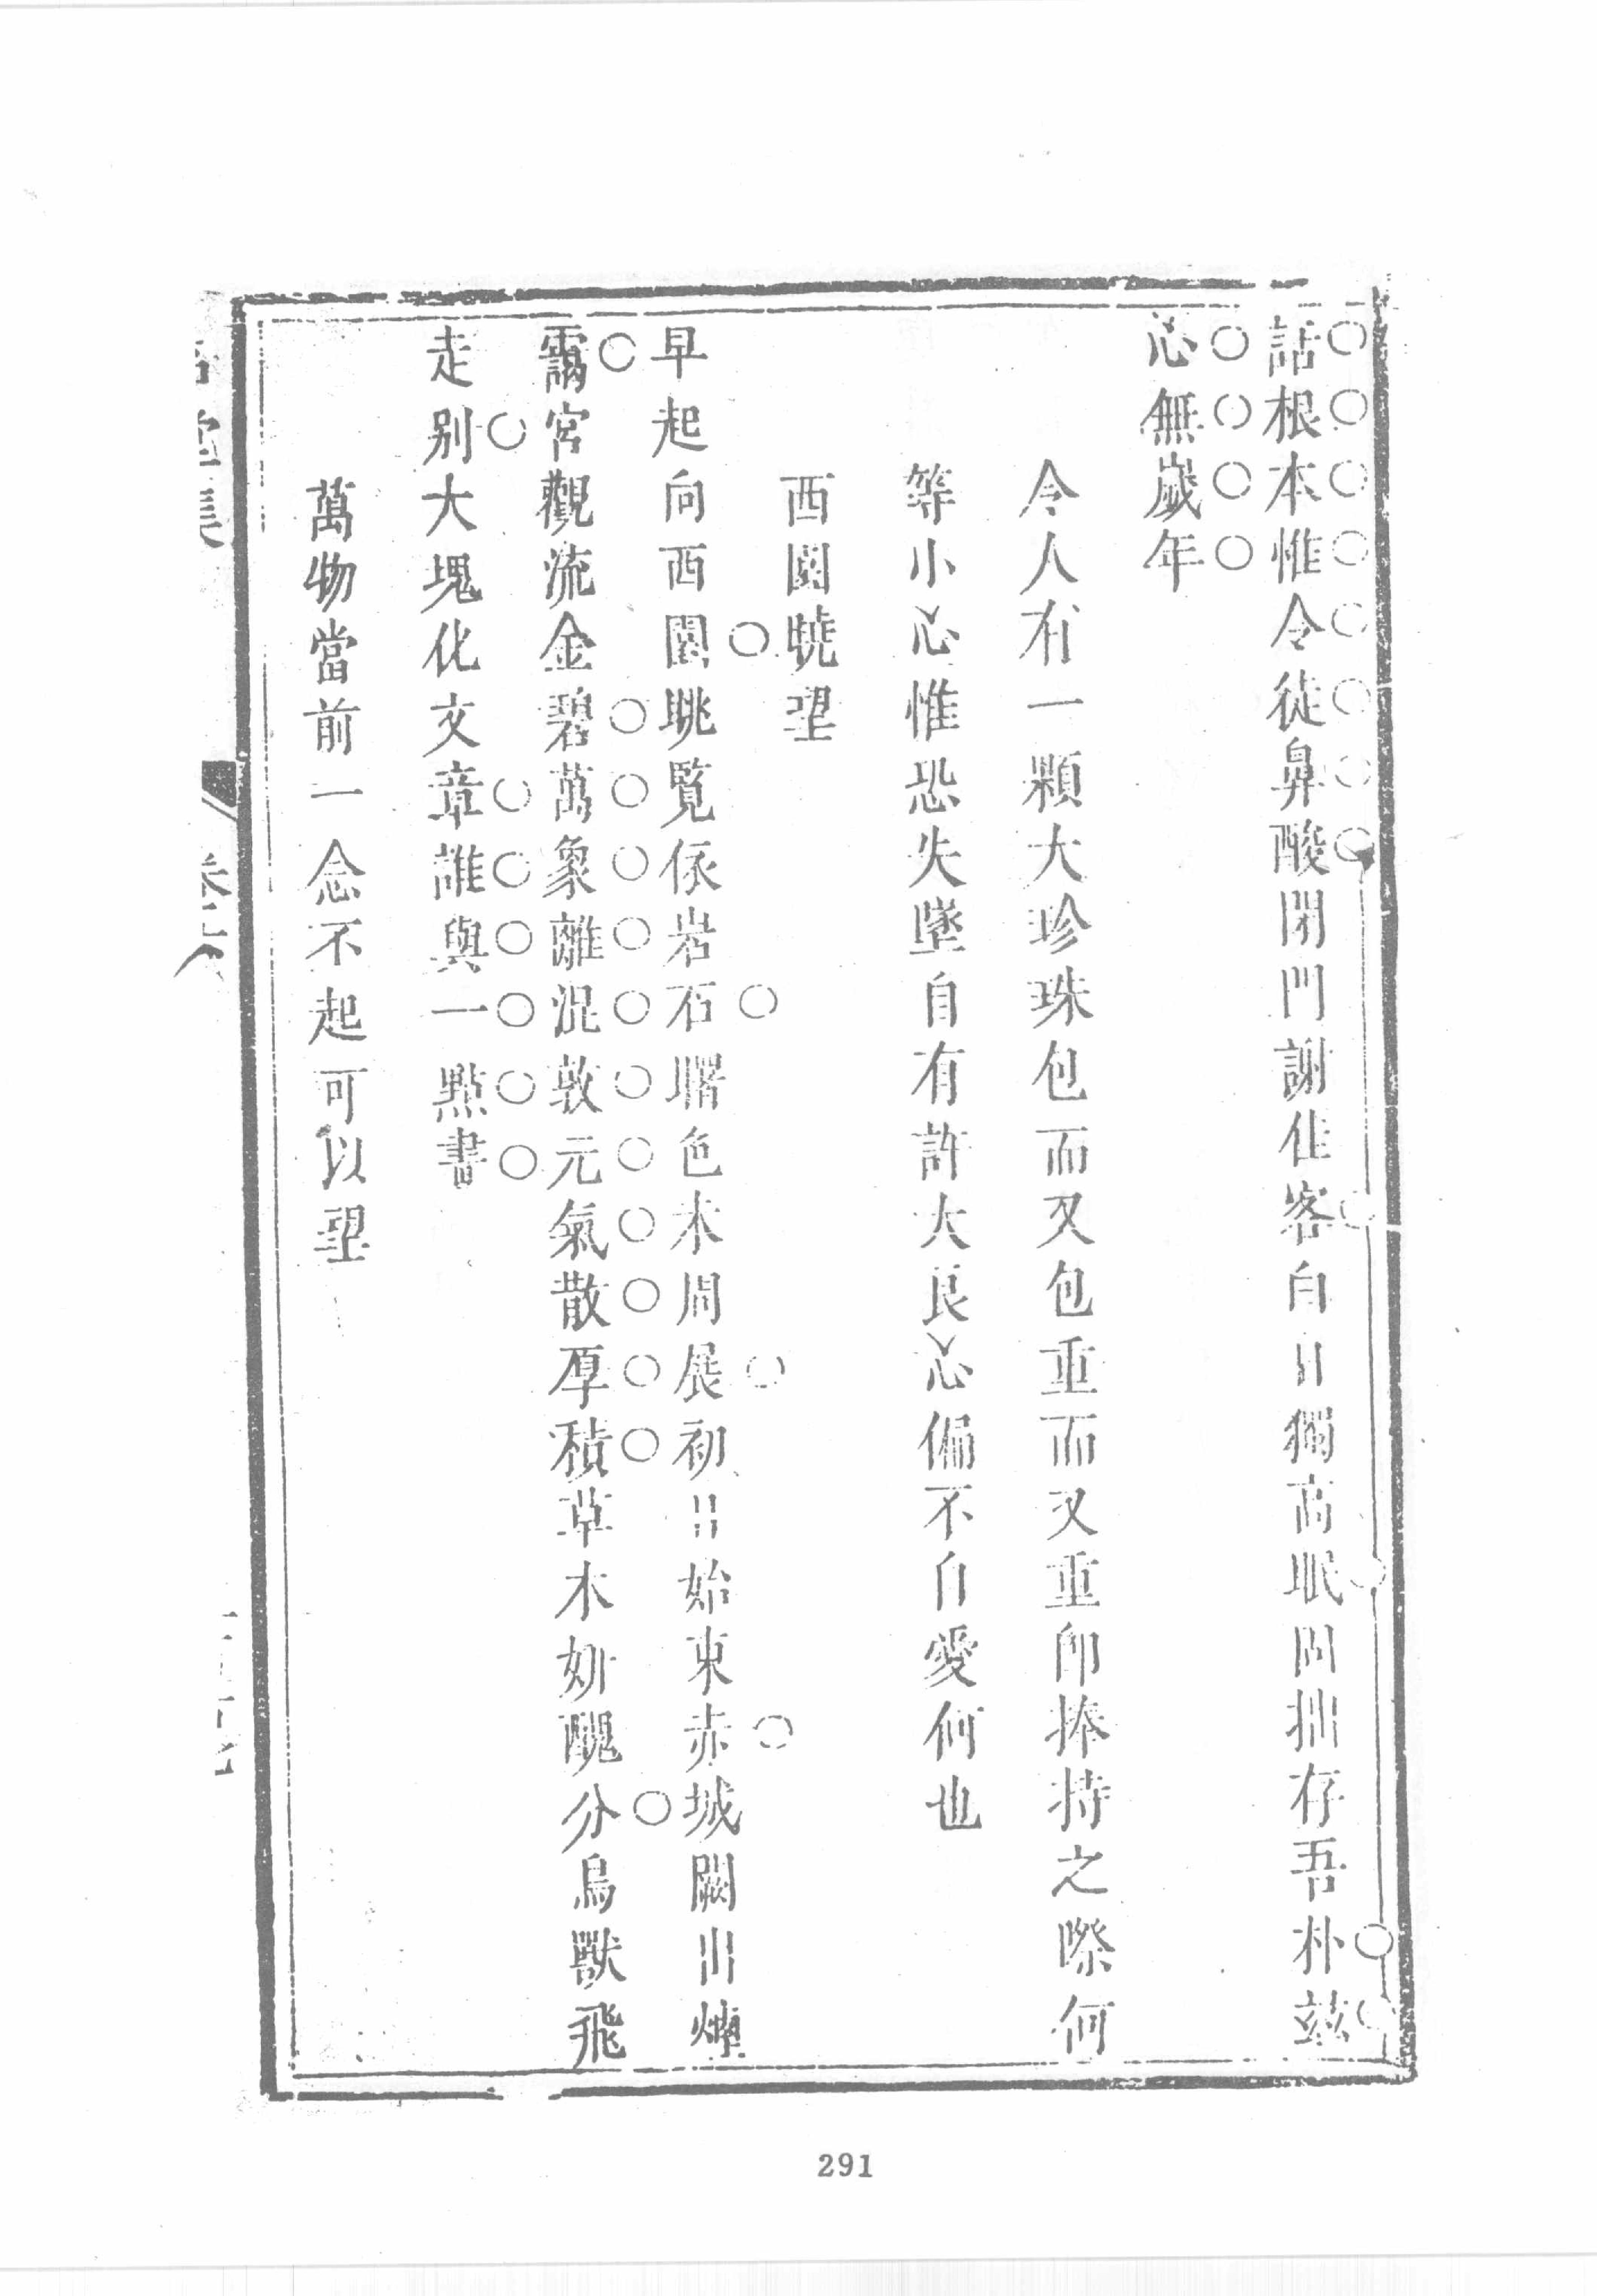 話根本惟令徒鼻酸閉門謝佳客白日獨高眠問拙存吾朴玆
心無歲年
令人有一顆大珍珠包而又包重而又重卽捧持之際何
等小心惟恐失墜自有許大良心偏不自愛何也
西園曉望
早起向西園眺覽依岩石曙色未周展初日始東赤城闕出煙
靄宮觀流金碧萬象離混敦元氣散厚積草木妍醜分鳥獸飛
走别大塊化文章誰與一點畫
萬物當前一念不起可以望
堂集
291